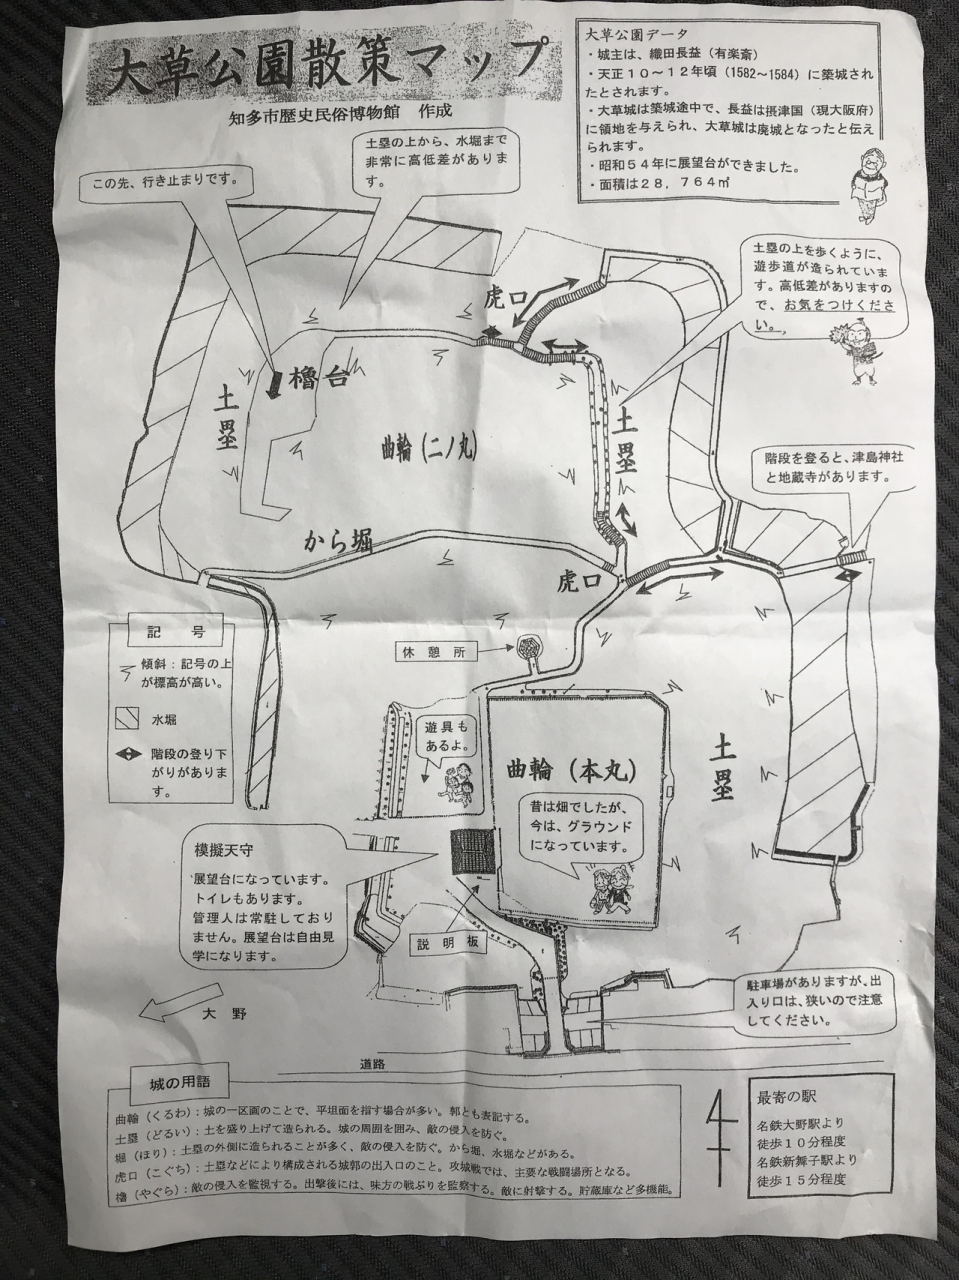 大草公園散策マップ
知多市歴史民俗博物館　作成
大草公園データ
・城主は、織田長益（有楽斎）
・天正１０～１２年頃（1582～1584）に築城され
たとされます。
・大草城は築城途中で、長益は摂津国（現大阪府）
に領地を与えられ、大草城は廃城となったと伝え
られます。
・昭和５４年に展望台ができました。
・面積は２８，７６４㎡
この先、行き止まりです。
土塁の上から、水堀まで
非常に高低差がありま
す。
土塁の上を歩くように、
遊歩道が造られていま
す。高低差がありますの
で、お気をつけくださ
い。
虎口
櫓台
土塁
曲輪（二ノ丸）
土塁
階段を登ると、津島神社
と地蔵寺があります。
から堀
虎口
記　号
傾斜：記号の上
が標高が高い。
水堀
階段の登り下
がりがありま
す。
休憩所
遊具も
あるよ。
曲輪（本丸）
土塁
昔は畑でしたが、
今は、グラウンド
になっています。
模擬天守
展望台になっています。
トイレもあります。
管理人は常駐しており
ません。展望台は自由見
学になります。
説明板
駐車場がありますが、出
入り口は、狭いので注意
してください。
大　野
道路
城の用語
曲輪（くるわ）：城の一区画のことで、平坦面を指す場合が多い。郭とも表記する。
土塁（どるい）：土を盛り上げて造られる。城の周囲を囲み、敵の侵入を防ぐ。
堀（ほり）：土塁の外側に造られることが多く、敵の侵入を防ぐ。から堀、水堀などがある。
虎口（こぐち）：土塁などにより構成される城郭の出入口のこと。攻城戦では、主要な戦闘場所となる。
櫓（やぐら）：敵の侵入を監視する。出撃後には、味方の戦ぶりを監察する。敵に射撃する。貯蔵庫など多機能。
最寄の駅
名鉄大野駅より
徒歩１０分程度
名鉄新舞子駅より
徒歩１５分程度